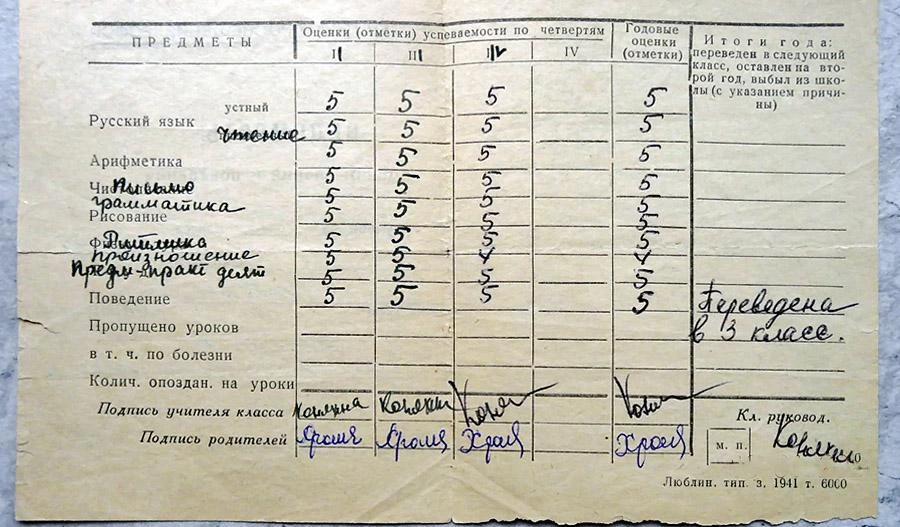 ПРЕДМЕТЫ
Оценки (отметки) успеваемости по четвертям
Годовые оценки (отметки)
Итоги года:
переведен в следующий
класс, оставлен на вто-
рой год, выбыл из шко-
лы (с указанием причи-
ны)
II III IV IV
устный 5 5 5 5
Русский язык
чтение 5 5 5 5
Арифметика 5 5 5 5
письмо 5 5 5 5
грамматика 5 5 5 5
Рисование 5 5 5
Ритмика 5 5 5 5
произношение 5 5 4 4
Предм-практ деят 5 5 5 5
Поведение 5 5 5 5
Переведена
в 3 класс.
Пропущено уроков
в т. ч. по болезни
Колич. опоздан. на уроки
Подпись учителя класса
Подпись родителей
Кл. руковод.
м. п.
Люблин. тип. з. 1941 т. 6000